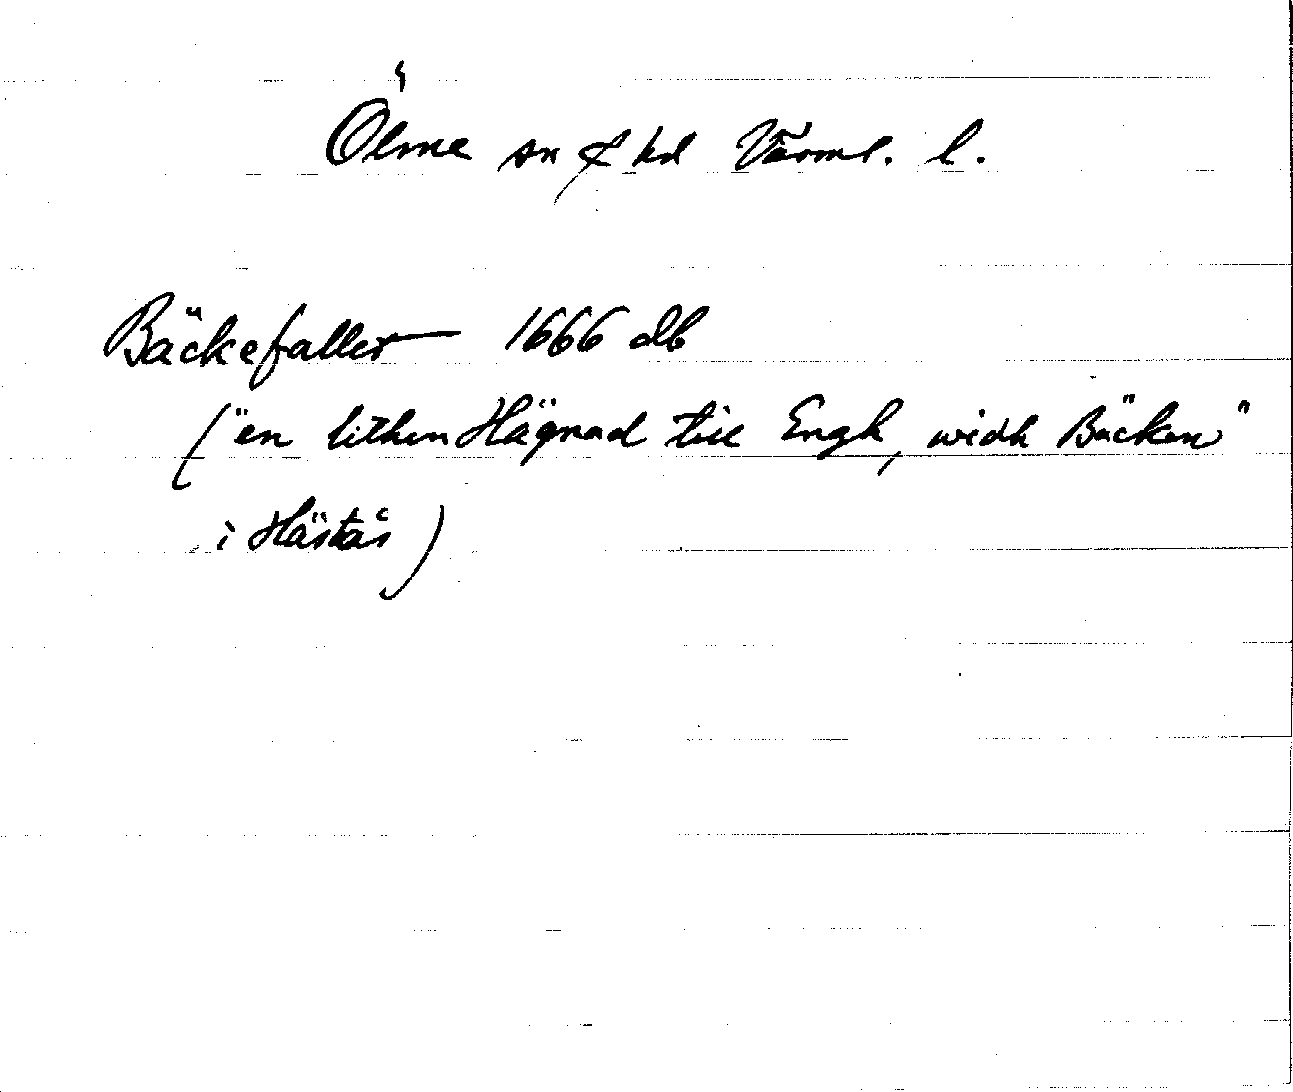 Ölme sn & hd Värml. l.
Bäckefallet 1666 db
("en lithen Hägnad till Engh, widh Bäcken"
i Hästås)